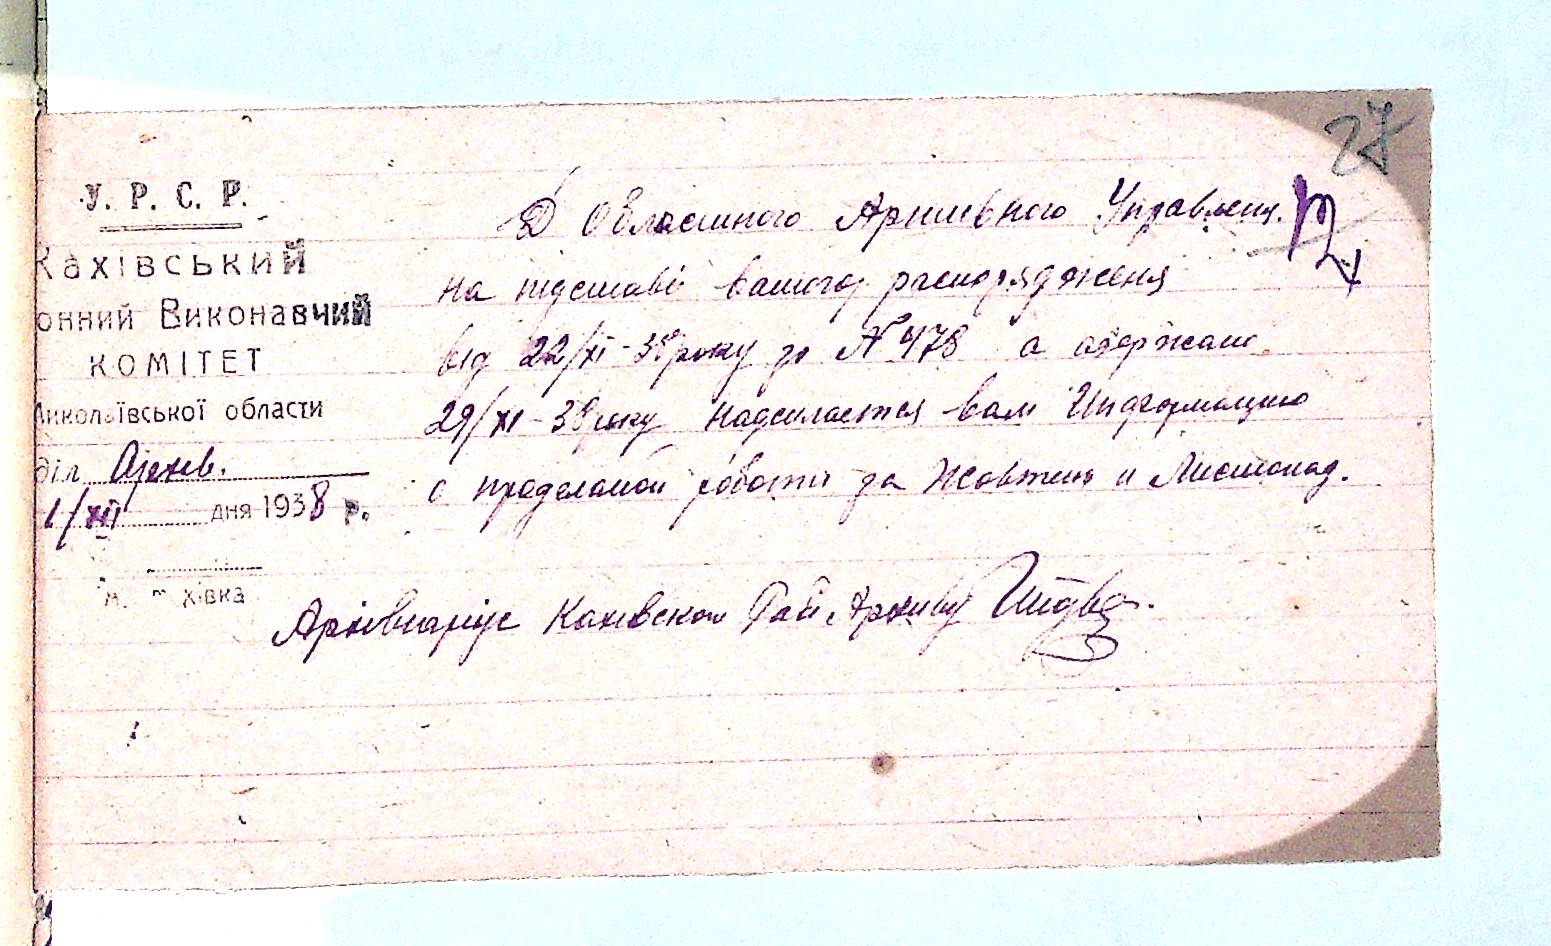 27
У. Р. С. Р.
Кахівський
онний Виконавчий
КОМІТЕТ
Миколаївської области
діл Архів.
1/XII дня 1938 р.
м. хівка
До Обласного Архивного Управленя.
на підставі вашого распорядженя
від 22/XI-38 року за № 478 а одержано
29/XI-38 року надсилается вам Информацию
о проделаной роботи за Жовтень и Листопад.
Архівариус Каховскои Рай Архиву